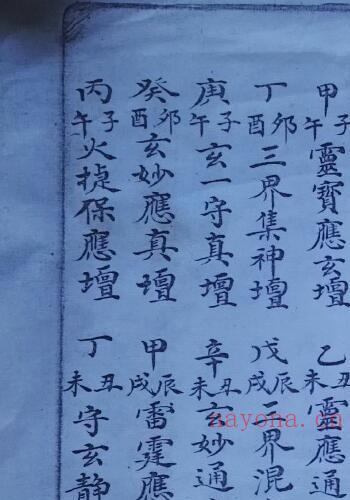 甲子午靈寶應玄壇
乙丑未靈應通
丁卯酉三界集神壇
戊辰戌三界混
庚子午玄一守真壇
辛丑未玄妙通
癸卯酉玄妙應真壇
甲辰戌雷霆應
丙子午火捷保應壇
丁丑未守玄靜
nayona.cn